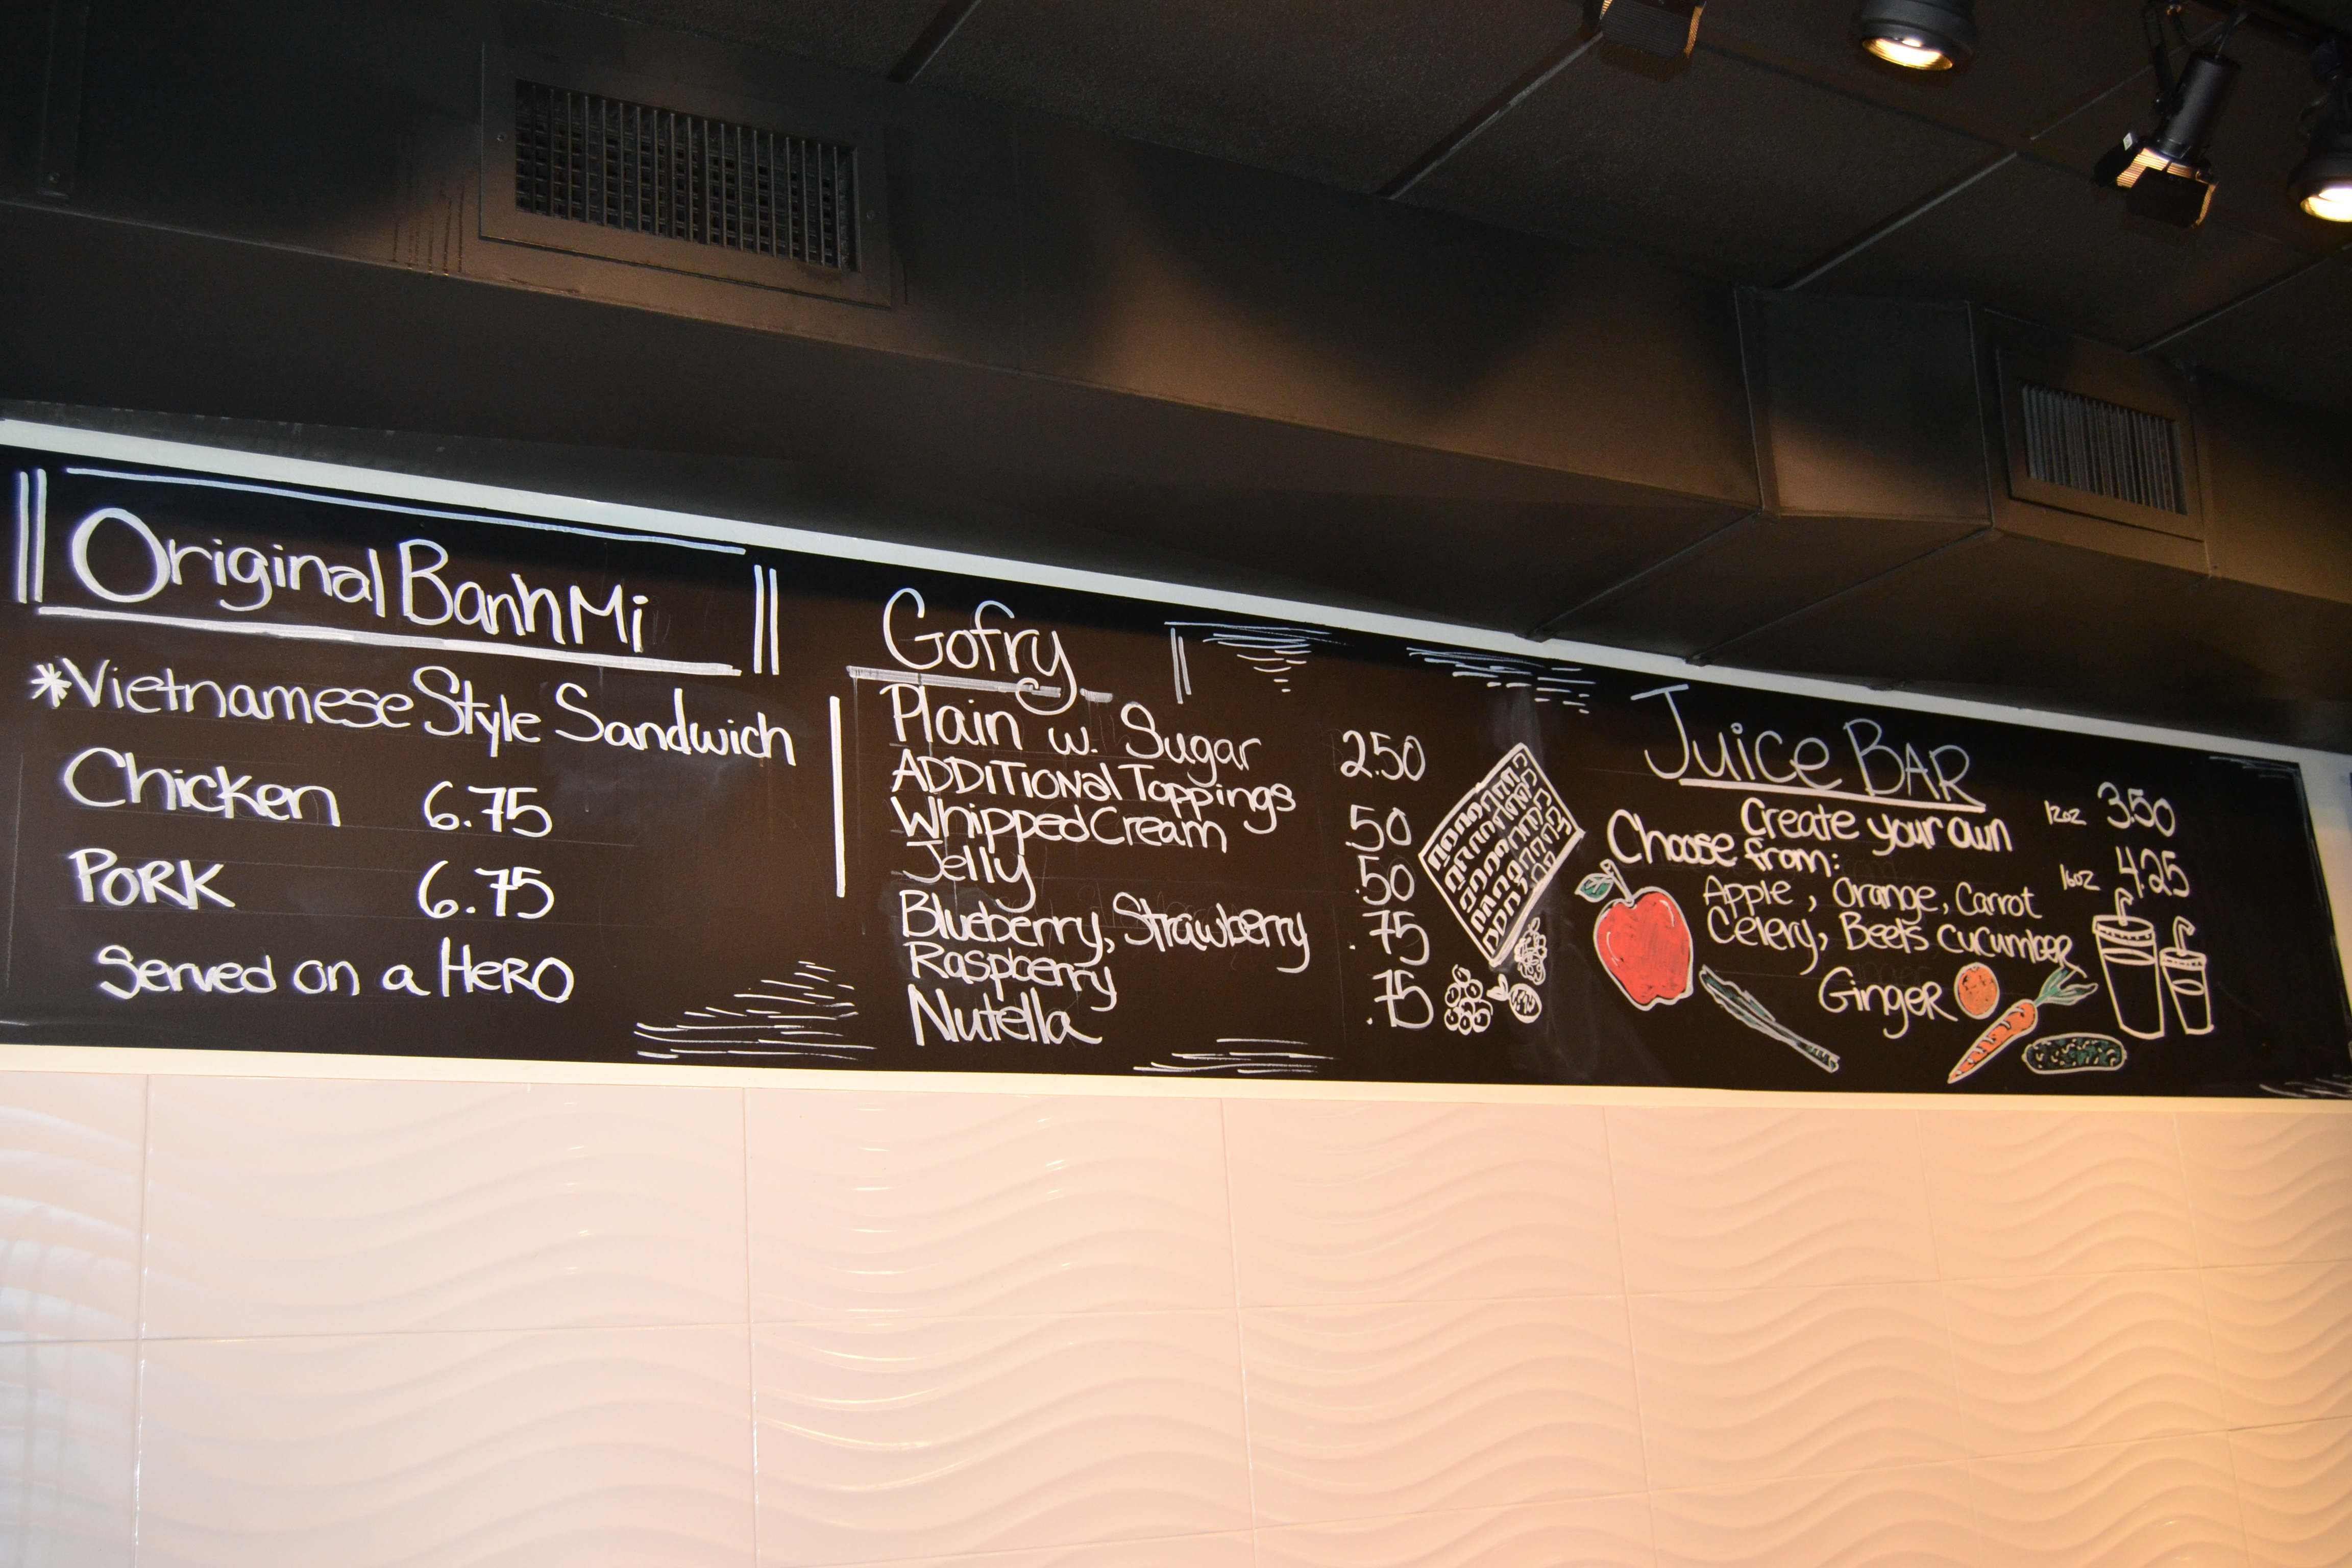 Original Banh Mi
*Vietnamese Style Sandwich
Chicken 6.75
PORK 6.75
Served on a HERO
Gofry
Plain w. Sugar 2.50
ADDITIONAL Toppings
Whipped Cream .50
Jelly .50
Blueberry, Strawberry .75
Raspberry
Nutella .75
Juice BAR
Create your own 12oz 3.50
Choose from: 16oz 4.25
Apple, Orange, Carrot
Celery, Beets cucumber
Ginger